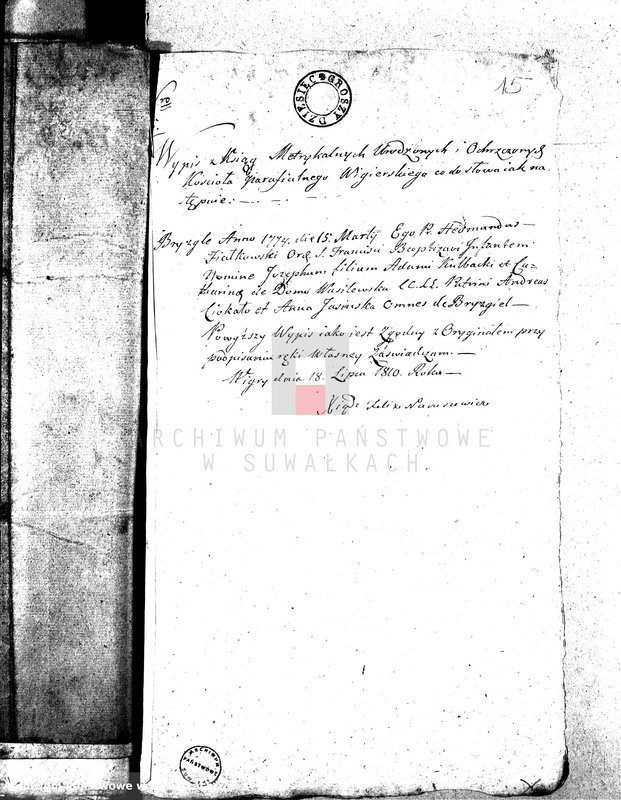 DZIESIĘC GROSZY
15
Wypis z Ksiąg Metrykalnych Urodzonych i Ochrzczonych
Kościoła Parafialnego Wigierskiego co do słowa iak na
stępuie:
Bryzgle Anno 1774. die 15. Martij Ego P.
Fiałkowski Ord. S. Francisci Baptizavi Infantem
Nomine Josephum filium Adami Kulbacki et Ca
tharinæ de Domo Wasilewska LC. LL. Patrini Andreas
Ciokało et Anna Jasinska omnes de Bryzgiel
Powyższy Wypis iako iest Zgodny z Oryginałem przy
podpisaniu ręki Własney Zaświadczam.
Wigry dnia 18. Lipca 1810. Roku
Xiądz Felix
ARCHIWUM PAŃSTWOWE
W SUWAŁKACH
ARCHIWUM
PAŃSTWOWE